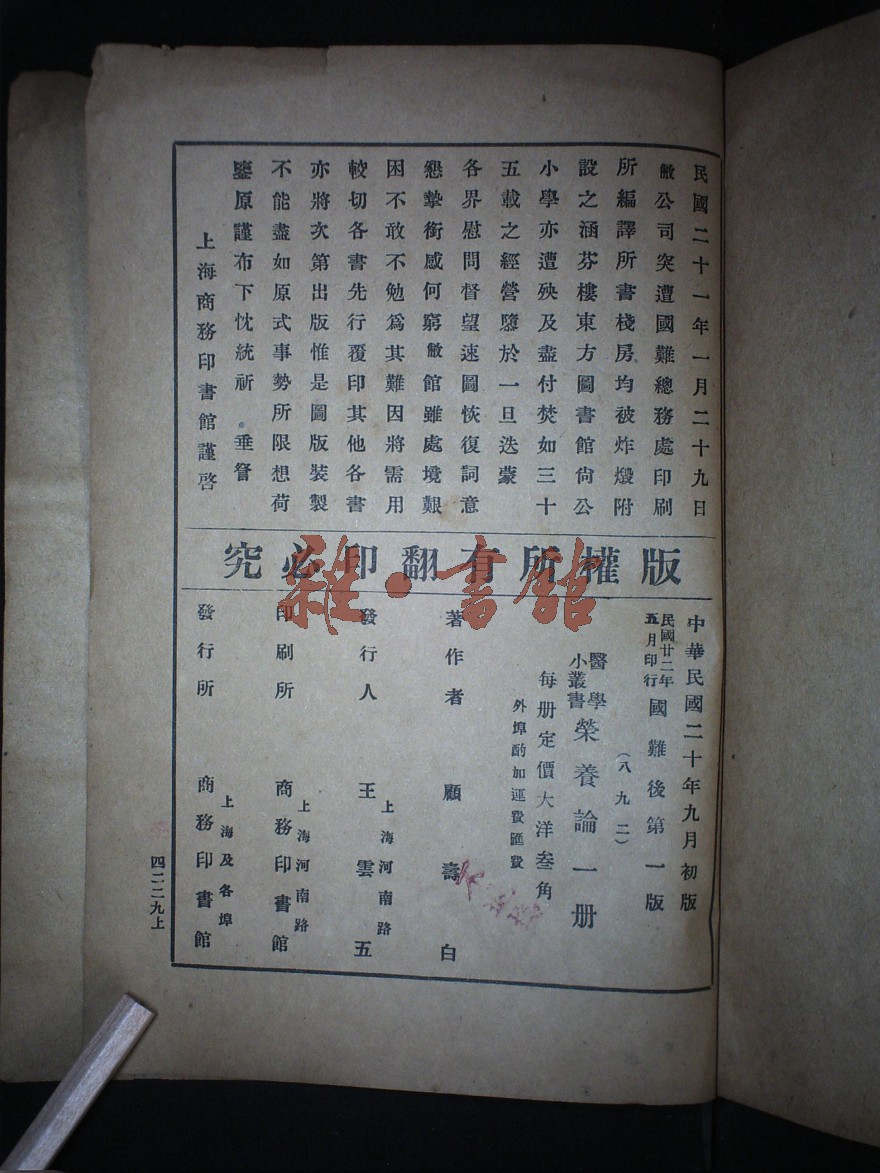 民國二十一年一月二十九日
敝公司突遭國難總務處印刷
所編譯所書棧房均被炸燬附
設之涵芬樓東方圖書館尙公
小學亦遭殃及盡付焚如三十
五載之經營隳於一旦迭蒙
各界慰問督望速圖恢復詞意
懇摯銜感何窮敝館雖處境艱
困不敢不勉爲其難因將需用
較切各書先行覆印其他各書
亦將次第出版惟是圖版裝製
不能盡如原式事勢所限想荷
鑒原謹布下忱統祈 垂詧
上海商務印書館謹啓
版權所有翻印必究
中華民國二十年九月初版
民國廿二年五月印行 國難後第一版
（八九二）
醫學小叢書 榮養論一册
每册定價大洋叁角
外埠酌加運費匯費
著作者 顧壽白
上海河南路
發行人 王雲五
上海河南路
印刷所 商務印書館
上海及各埠
發行所 商務印書館
四二二九上
雜·書館